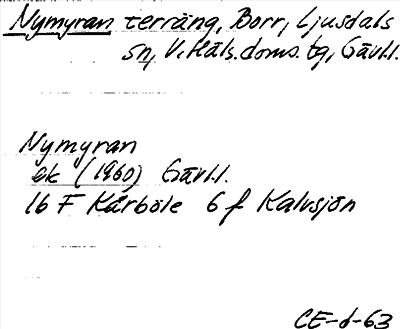 Nymyran terräng, Borr, Ljusdals
sn, V. Häls. doms. tg, Gävl.l.
Nymyran
ek (1960) Gävl.l.
16 F Kårböle 6 f Kalvsjön
CE-d-63